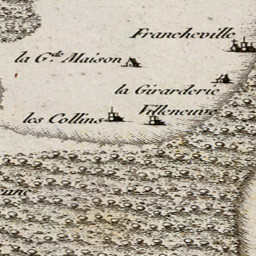 Francheville
la G.de Maison
la Girarderie
Villeneuve
les Collins